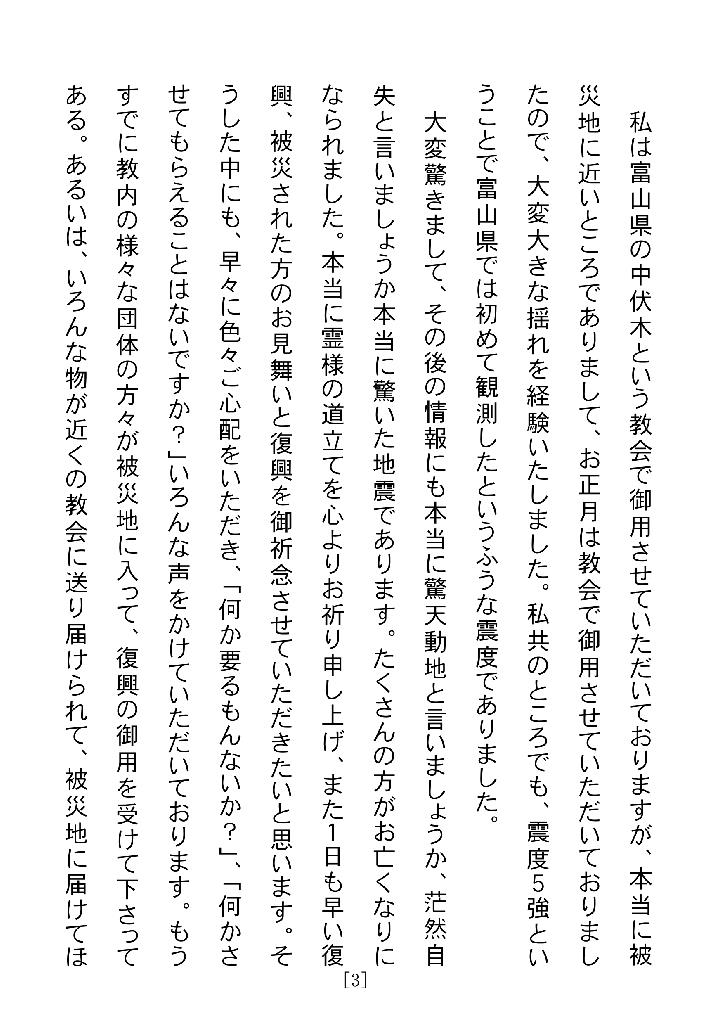 私は富山県の中伏木という教会で御用させていただいておりますが、本当に被
災地に近いところでありまして、お正月は教会で御用させていただいておりまし
たので、大変大きな揺れを経験いたしました。私共のところでも、震度５強とい
うことで富山県では初めて観測したというふうな震度でありました。
大変驚きまして、その後の情報にも本当に驚天動地と言いましょうか、茫然自
失と言いましょうか本当に驚いた地震であります。たくさんの方がお亡くなりに
なられました。本当に霊様の道立てを心よりお祈り申し上げ、また１日も早い復
興、被災された方のお見舞いと復興を御祈念させていただきたいと思います。そ
うした中にも、早々に色々ご心配をいただき、「何か要るもんないか？」、「何かさ
せてもらえることはないですか？」いろんな声をかけていただいております。もう
すでに教内の様々な団体の方々が被災地に入って、復興の御用を受けて下さって
ある。あるいは、いろんな物が近くの教会に送り届けられて、被災地に届けてほ
[3]